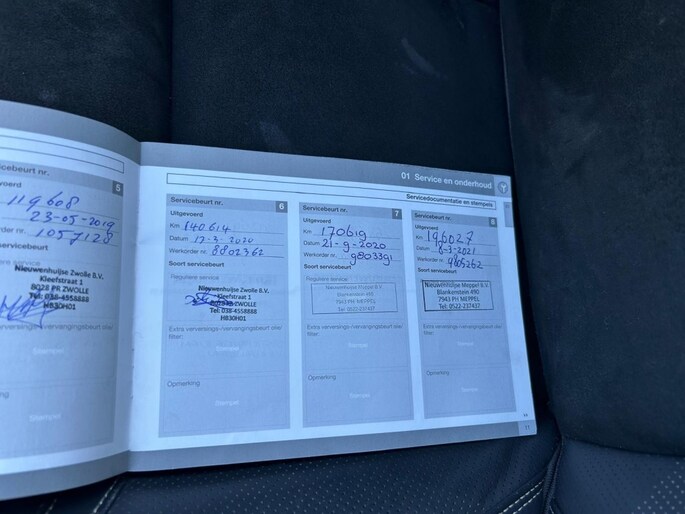 01 Service en onderhoud
Servicedocumentatie en stempels
Servicebeurt nr. 5
119608
23-05-2019
1057128
Nieuwenhuijse Zwolle B.V.
Kleefstraat 1
8028 PR ZWOLLE
Tel: 038-4558888
HB30H01
Stempel
Opmerking
Stempel
Servicebeurt nr. 6
Uitgevoerd
Km 140614
Datum 17-3-2020
Werkorder nr. 8802362
Soort servicebeurt
Reguliere service
Nieuwenhuijse Zwolle B.V.
Kleefstraat 1
ZWOLLE
Tel: 038-4558888
HB30H01
Extra verversings-/vervangingsbeurt olie/
filter:
Stempel
Opmerking
Stempel
Servicebeurt nr. 7
Uitgevoerd
Km 170619
Datum 21-9-2020
Werkorder nr. 9803391
Soort servicebeurt
Reguliere service
Nieuwenhuijse Meppel B.V.
Blankenstein 490
7943 PH MEPPEL
Tel: 0522-237437
Extra verversings-/vervangingsbeurt olie/
filter:
Stempel
Opmerking
Stempel
Servicebeurt nr. 8
Uitgevoerd
Km 196027
Datum 8-3-2021
Werkorder nr. 9805262
Soort servicebeurt
Nieuwenhuijse Meppel B.V.
Blankenstein 490
7943 PH MEPPEL
Tel: 0522-237437
Extra verversings-/vervangingsbeurt olie/
filter:
Stempel
Opmerking
Stempel
11